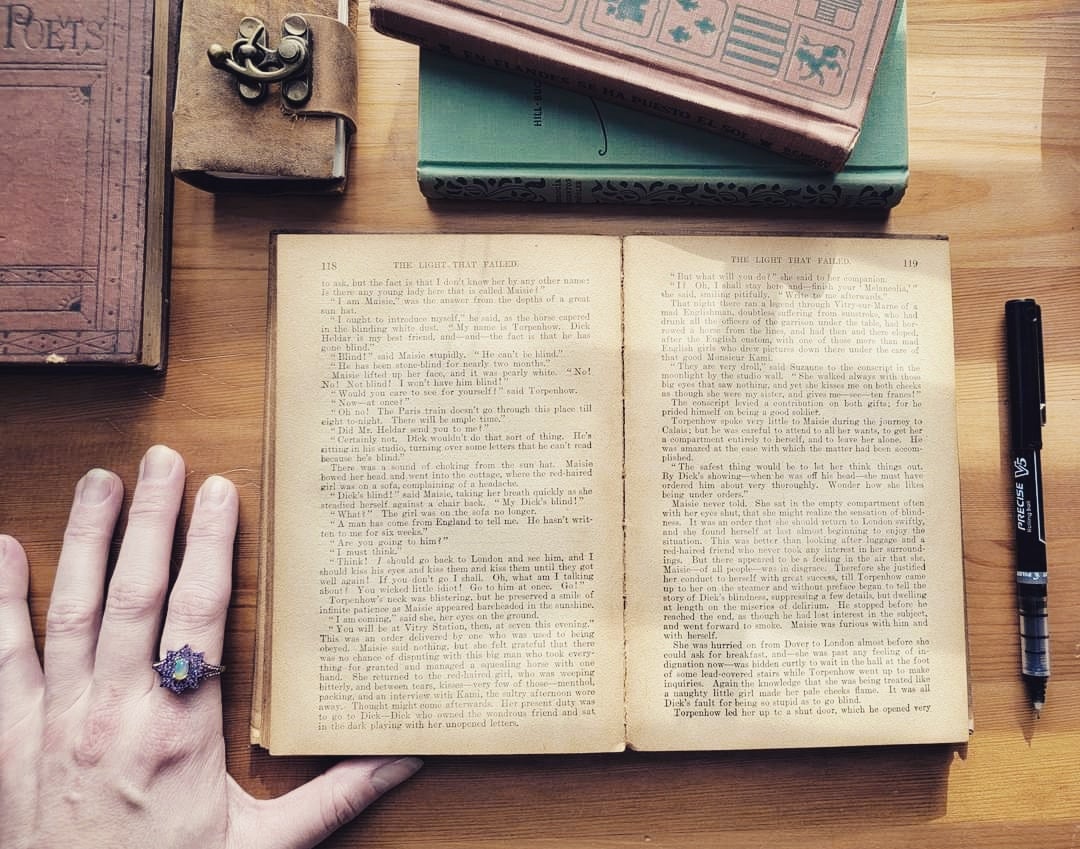 POETS
HILL-BUC
EN FLANDES SE HA PUESTO EL SOL
118
THE LIGHT THAT FAILED.
to ask, but the fact is that I don't know her by any other name:
Is there any young lady here that is called Maisie?"
"I am Maisie," was the answer from the depths of a great
sun hat.
"I ought to introduce myself," he said, as the horse capered
in the blinding white dust. "My name is Torpenhow. Dick
Heldar is my best friend, and—and—the fact is that he has
gone blind."
"Blind!" said Maisie stupidly. "He can't be blind."
"He has been stone-blind for nearly two months."
Maisie lifted up her face, and it was pearly white. "No!
No! Not blind! I won't have him blind!"
"Would you care to see for yourself?" said Torpenhow.
"Now—at once?"
"Oh no! The Paris train doesn't go through this place till
eight to-night. There will be ample time."
"Did Mr. Heldar send you to me?"
"Certainly not. Dick wouldn't do that sort of thing. He's
sitting in his studio, turning over some letters that he can't read
because he's blind."
There was a sound of choking from the sun hat. Maisie
bowed her head and went into the cottage, where the red-haired
girl was on a sofa, complaining of a headache.
"Dick's blind!" said Maisie, taking her breath quickly as she
steadied herself against a chair back. "My Dick's blind!"
"What!" The girl was on the sofa no longer.
"A man has come from England to tell me. He hasn't writ-
ten to me for six weeks."
"Are you going to him?"
"I must think."
"Think! I should go back to London and see him, and I
should kiss his eyes and kiss them and kiss them until they got
well again! If you don't go I shall. Oh, what am I talking
about? You wicked little idiot! Go to him at once. Go!"
Torpenhow's neck was blistering, but he preserved a smile of
infinite patience as Maisie appeared bareheaded in the sunshine.
"I am coming," said she, her eyes on the ground.
"You will be at Vitry Station, then, at seven this evening."
This was an order delivered by one who was used to being
obeyed. Maisie said nothing, but she felt grateful that there
was no chance of disputing with this big man who took every-
thing for granted and managed a squealing horse with one
hand. She returned to the red-haired girl, who was weeping
bitterly, and between tears, kisses—very few of those—menthol,
packing, and an interview with Kami, the sultry afternoon wore
away. Thought might come afterwards. Her present duty was
to go to Dick—Dick who owned the wondrous friend and sat
in the dark playing with her unopened letters.
THE LIGHT THAT FAILED.
119
"But what will you do?" she said to her companion.
"I? Oh, I shall stay here and—finish your 'Melancolia,'"
she said, smiling pitifully. "Write to me afterwards."
That night there ran a legend through Vitry-sur-Marne of a
mad Englishman, doubtless suffering from sunstroke, who had
drunk all the officers of the garrison under the table, had bor-
rowed a horse from the lines, and had then and there eloped,
after the English custom, with one of those more than mad
English girls who drew pictures down there under the care of
that good Monsieur Kami.
"They are very droll," said Suzanne to the conscript in the
moonlight by the studio wall. "She walked always with those
big eyes that saw nothing, and yet she kisses me on both cheeks
as though she were my sister, and gives me—see—ten francs!"
The conscript levied a contribution on both gifts; for he
prided himself on being a good soldier.
Torpenhow spoke very little to Maisie during the journey to
Calais; but he was careful to attend to all her wants, to get her
a compartment entirely to herself, and to leave her alone. He
was amazed at the ease with which the matter had been accom-
plished.
"The safest thing would be to let her think things out.
By Dick's showing—when he was off his head—she must have
ordered him about very thoroughly. Wonder how she likes
being under orders."
Maisie never told. She sat in the empty compartment often
with her eyes shut, that she might realize the sensation of blind-
ness. It was an order that she should return to London swiftly,
and she found herself at last almost beginning to enjoy the
situation. This was better than looking after luggage and a
red-haired friend who never took any interest in her surround-
ings. But there appeared to be a feeling in the air that she,
Maisie—of all people—was in disgrace. Therefore she justified
her conduct to herself with great success, till Torpenhow came
up to her on the steamer and without preface began to tell the
story of Dick's blindness, suppressing a few details, but dwelling
at length on the miseries of delirium. He stopped before he
reached the end, as though he had lost interest in the subject,
and went forward to smoke. Maisie was furious with him and
with herself.
She was hurried on from Dover to London almost before she
could ask for breakfast, and—she was past any feeling of in-
dignation now—was bidden curtly to wait in the hall at the foot
of some lead-covered stairs while Torpenhow went up to make
inquiries. Again the knowledge that she was being treated like
a naughty little girl made her pale cheeks flame. It was all
Dick's fault for being so stupid as to go blind.
Torpenhow led her up to a shut door, which he opened very
PRECISE V5
Rolling Ball